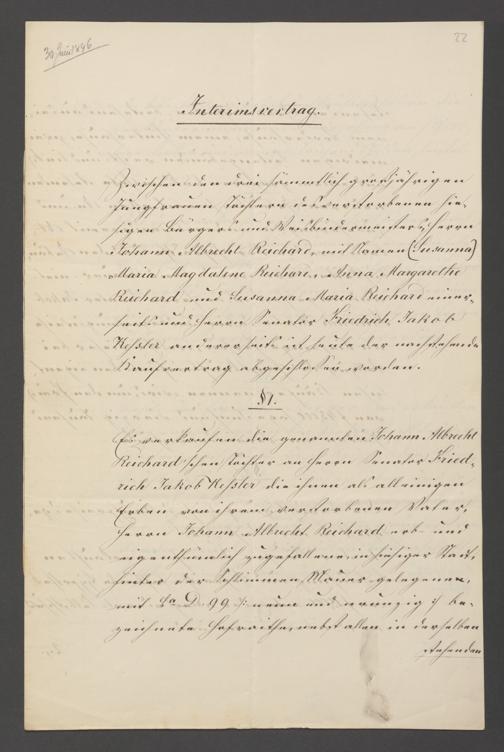 30 Juni 1846
22
Interimsvertrag.
Zwischen den drei sämmtlich großjährigen
Jungfrauen Töchtern des verstorbenen hie-
sigen Bürgers und Weisbindermeisters, Herrn
Johann Albrecht Reichard, mit Namen (Susanna)
Maria Magdalene Reichard, Anna Margarethe
Reichard und Susanna Maria Reichard einer-
seits und Herrn Senator Friedrich Jakob
Keßler andererseits ist heute der nachstehende
Kaufvertrag abgeschlossen worden.
§1.
Es verkaufen die genannten Johann Albrecht
Reichard'schen Töchter an Herrn Senator Fried-
rich Jakob Keßler die ihnen als alleinigen
Erben von ihrem verstorbenen Vater,
Herrn Johann Albrecht Reichard erb- und
eigenthümlich zugefallene, in hiesiger Stadt,
hinter der Schlimmen Mauer gelegene,
mit Lra D. 99 /: neun und neunzig :/ be-
zeichnete Hofraithe, nebst allen in derselben
stehenden